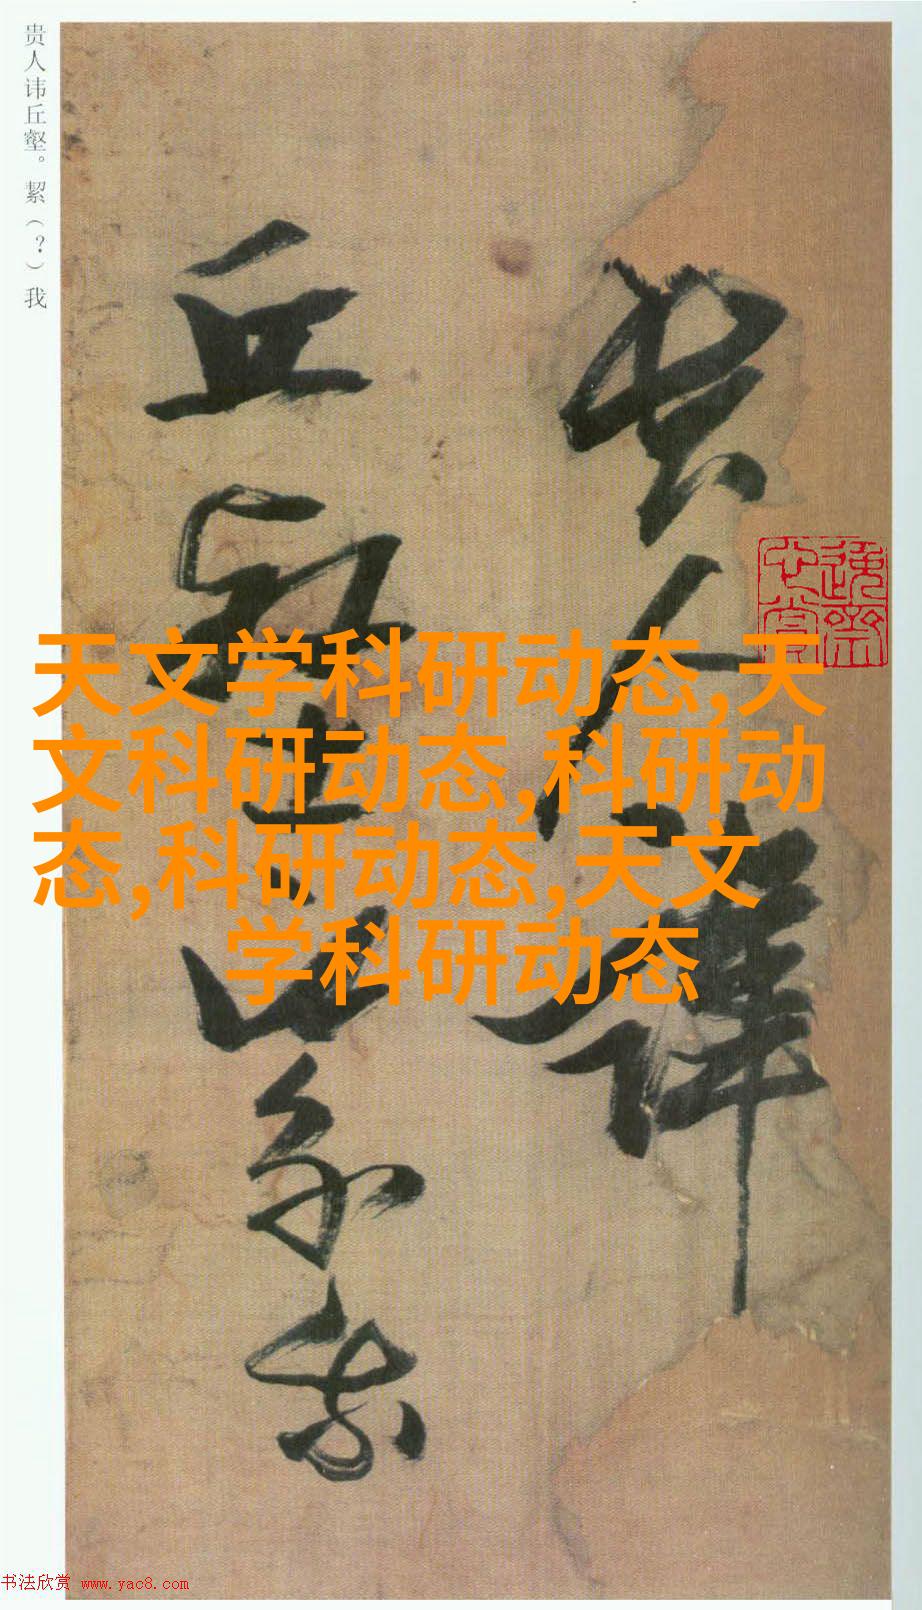 贵人讳丘壑。絜（？）我
贵人讳
丘壑絜我
天文学科研动态,天
文科研动态,科研动
态,科研动态,天文
学科研动态
书法欣赏 www.yac8.com